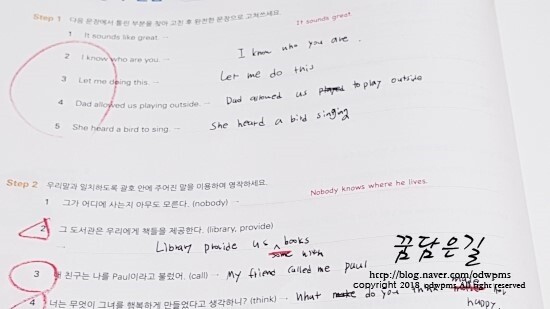 Step 1 다음 문장에서 틀린 부분을 찾아 고친 후 완전한 문장으로 고쳐쓰세요.
It sounds great.
1 It sounds like great. →
2 I know who are you. → I know who you are.
3 Let me doing this. → Let me do this
4 Dad allowed us playing outside. → Dad allowed us to play outside
5 She heard a bird to sing. → She heard a bird singing
Step 2 우리말과 일치하도록 괄호 안에 주어진 말을 이용하여 영작하세요.
Nobody knows where he lives.
1 그가 어디에 사는지 아무도 모른다. (nobody) →
2 그 도서관은 우리에게 책들을 제공한다. (library, provide)
→ Library provide us with books
꿈담은길
3 내 친구는 나를 Paul이라고 불렀어. (call) → My friend called me paul
http://blog.naver.com/odwpms
copyright 2018. odwpms All rights reserved
4 너는 무엇이 그녀를 행복하게 만들었다고 생각하니? (think) → what do you think made her
happy.